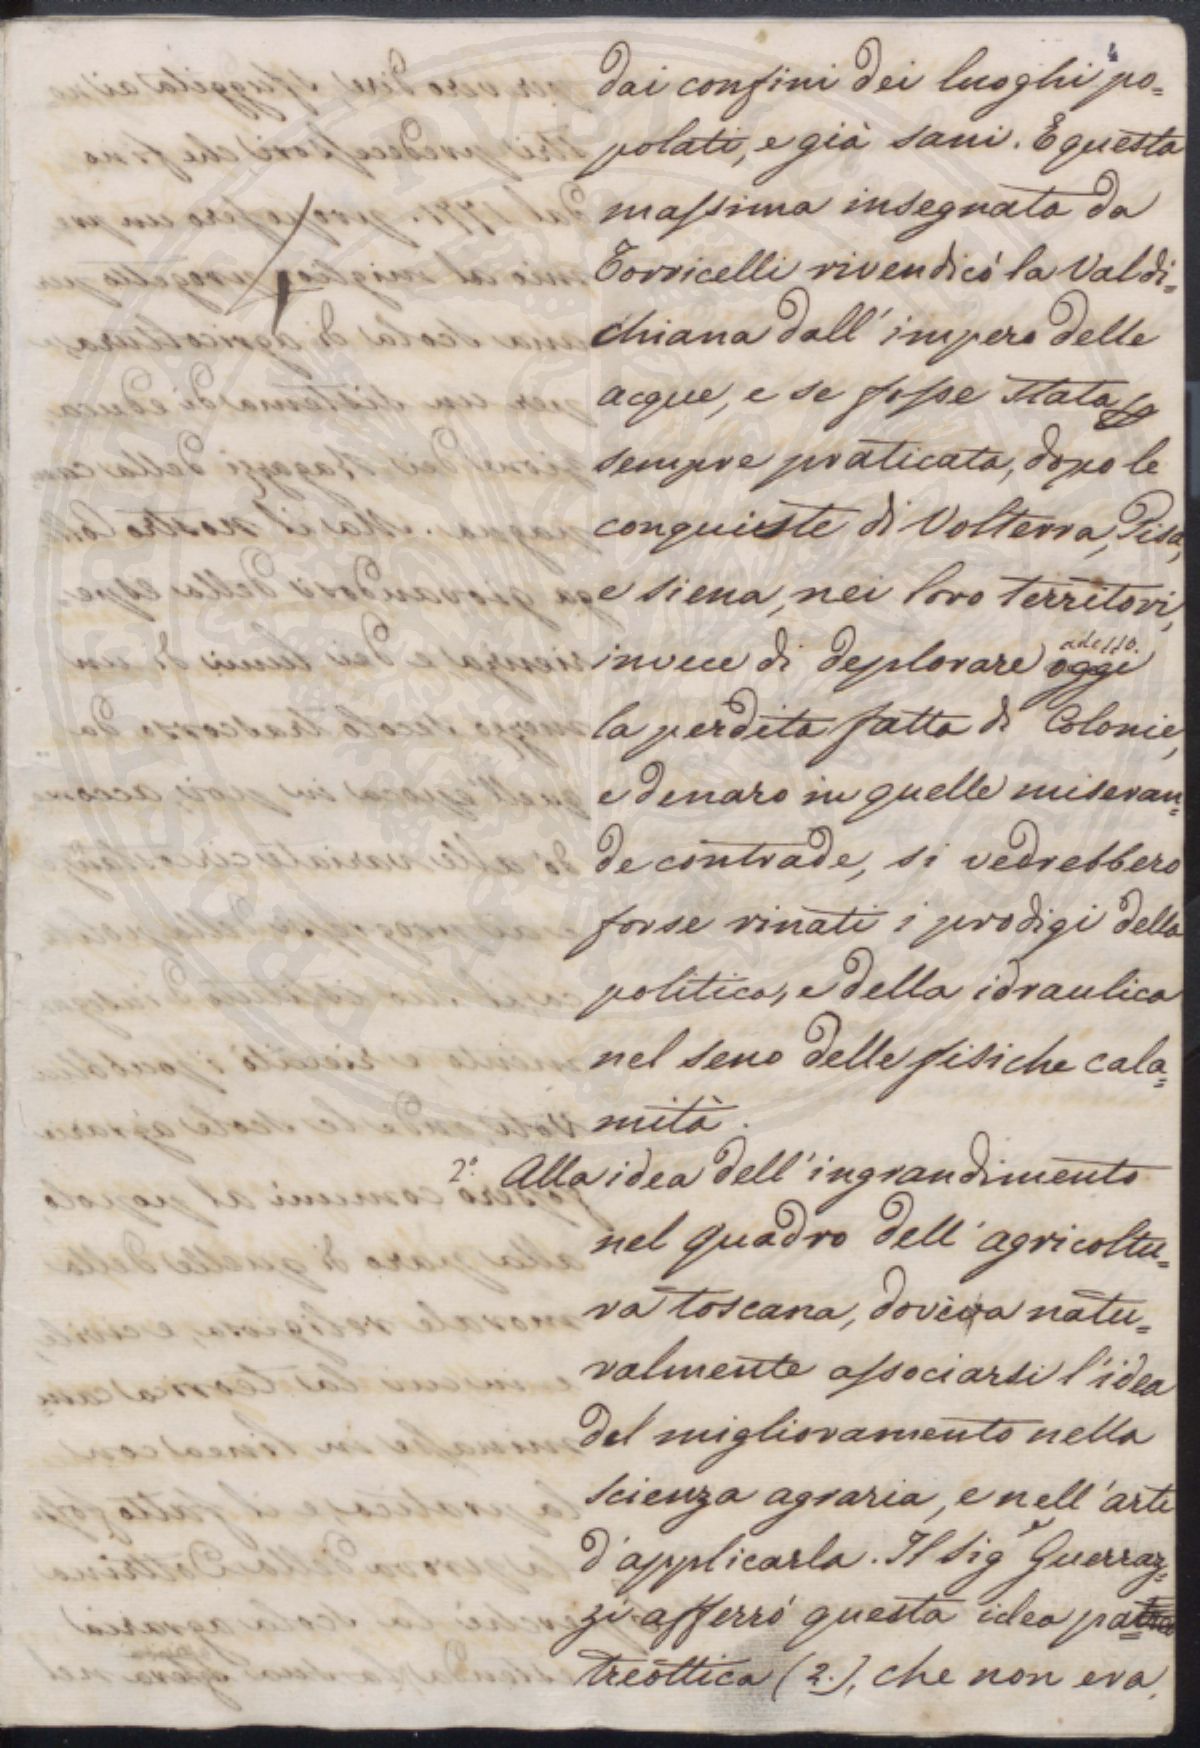 4
dai confini dei luoghi po=
polati, e già sani. E questa
massima insegnata da
Torricelli rivendicò la Valdi=
chiana dall'impero delle
acque, e se fosse stata
sempre praticata, dopo le
conquiste di Volterra, Pisa,
e Siena, nei loro territori,
invece di deplorare oggi adesso.
la perdita fatta di Colonie,
e denaro in quelle miseran=
de contrade, si vedrebbero
forse rinati i prodigi della
politica, e della idraulica
nel seno delle fisiche cala=
mità.
2.° Alla idea dell'ingrandimento
nel quadro dell'agricoltu=
ra toscana, doveva natu=
ralmente associarsi l'idea
del miglioramento nella
scienza agraria, e nell'arte
d'applicarla. Il Sig.r Guerraz=
zi afferrò questa idea pa=
treottica (2.), che non era,